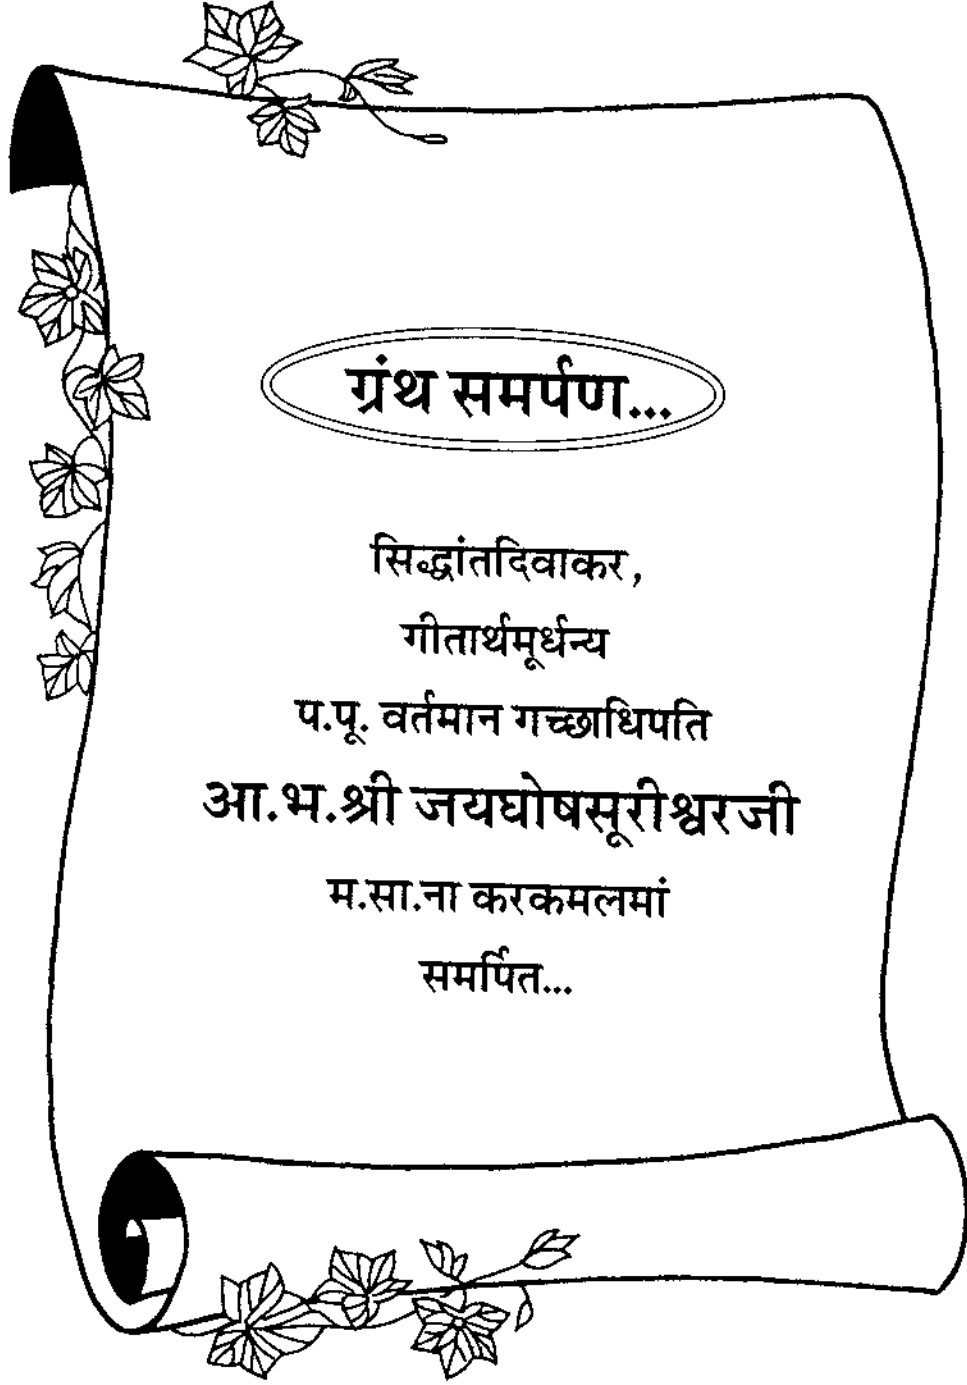 ग्रंथ समर्पण...
सिद्धांतदिवाकर,
गीतार्थमूर्धन्य
प.पू. वर्तमान गच्छाधिपति
आ.भ.श्री जयघोषसूरीश्वरजी
म.सा.ना करकमलमां
समर्पित...